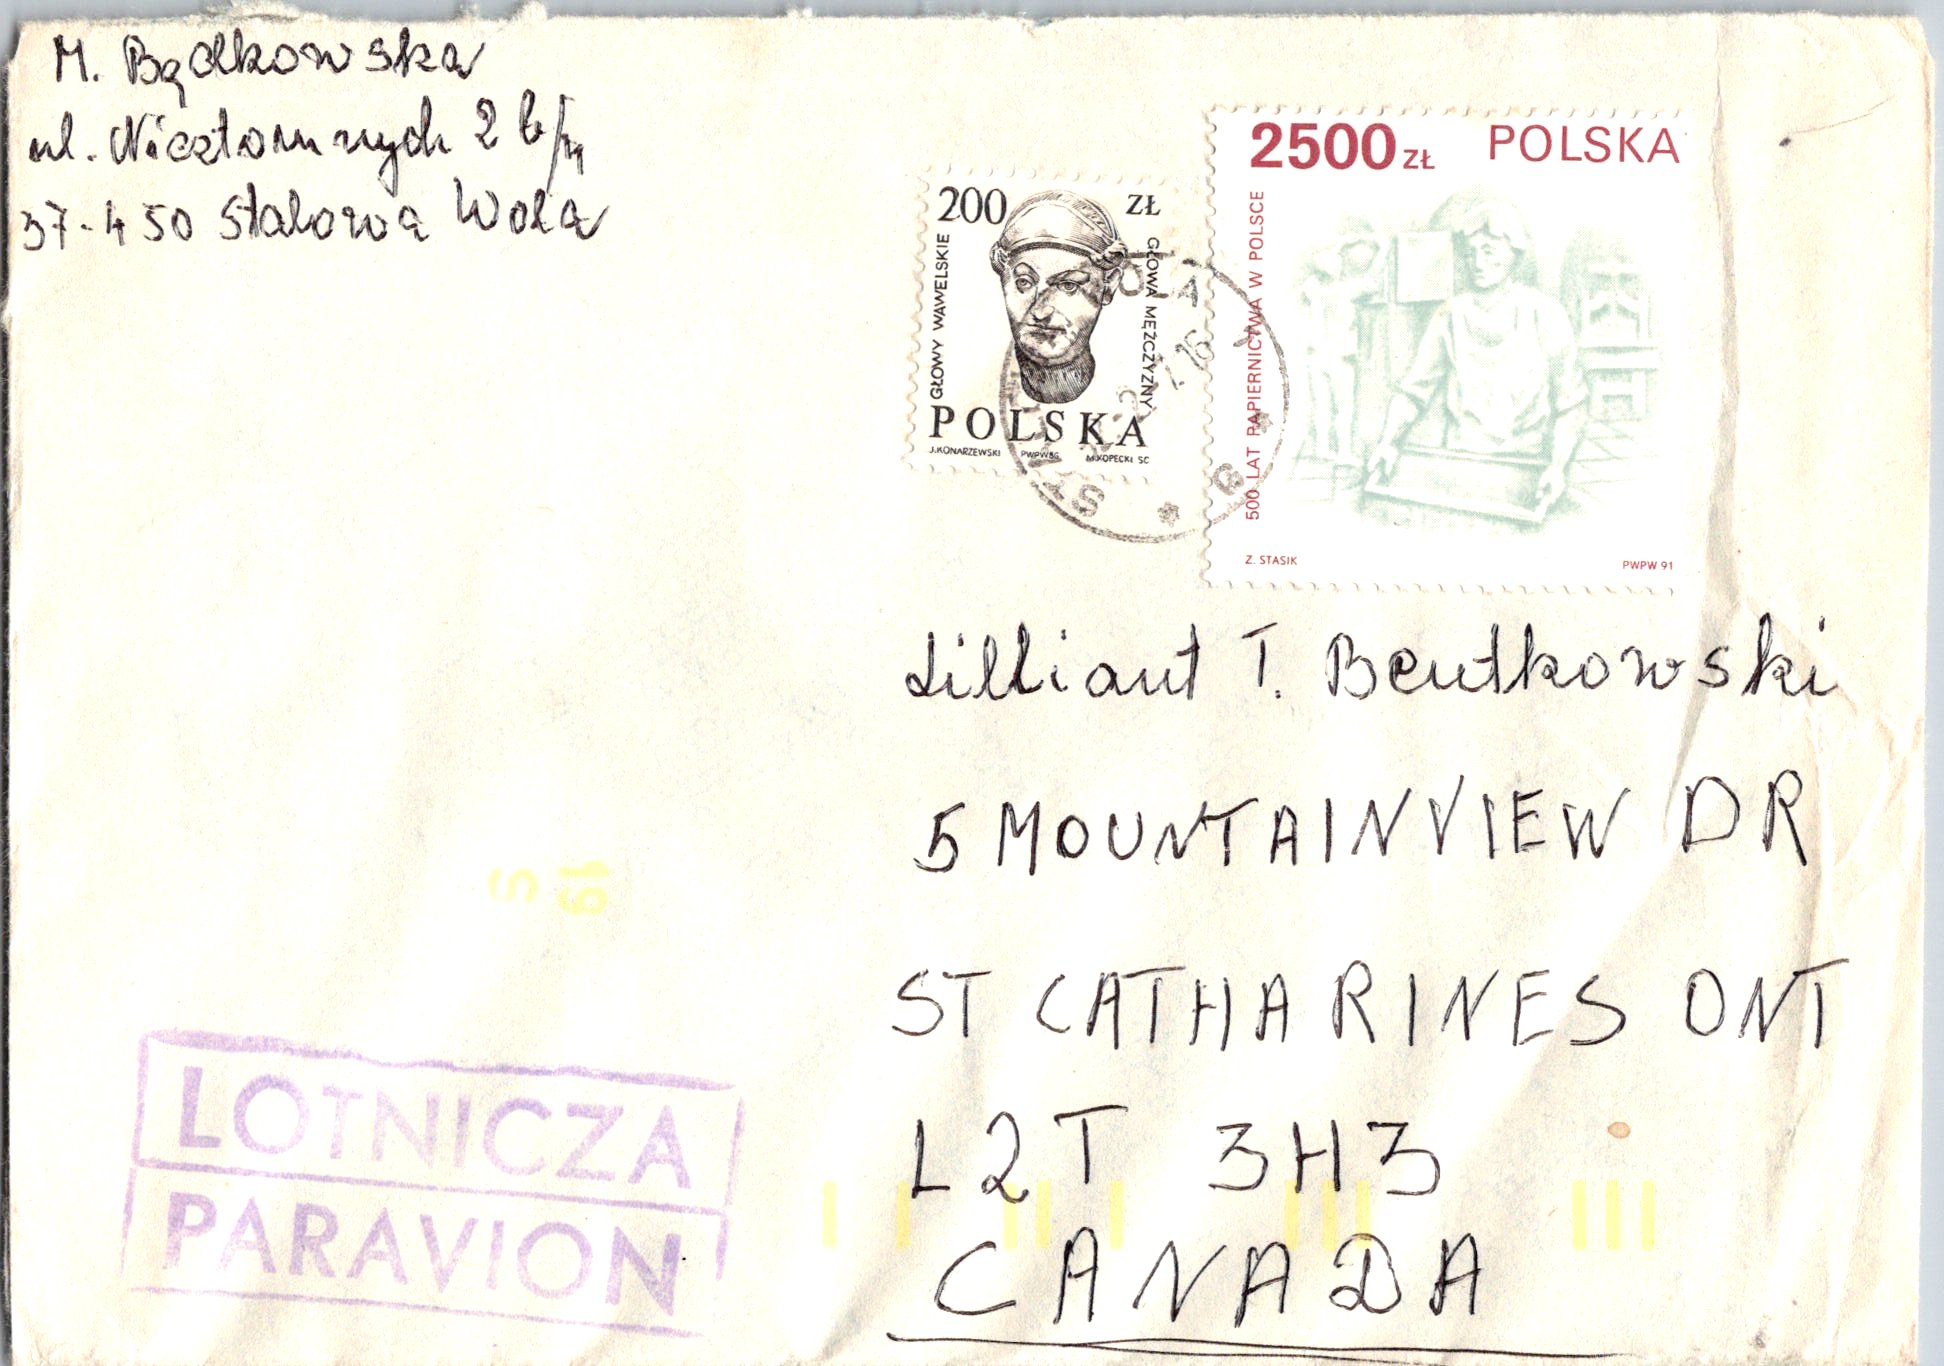 M. Bądkowska
ul. Niezłomnych 2
37-450 Stalowa Wola
200 ZŁ
GŁOWY WAWELSKIE
GŁOWA MĘŻCZYZNY
POLSKA
J.KONARZEWSKI PWPW86 M.KOPECKI SC
2500 ZŁ POLSKA
500 LAT PAPIERNICTWA W POLSCE
Z. STASIK PWPW 91
Lilliant T. Bentkowski
5 MOUNTAINVIEW DR
ST CATHARINES ONT
L2T 3H3
CANADA
LOTNICZA
PARAVION
19
5